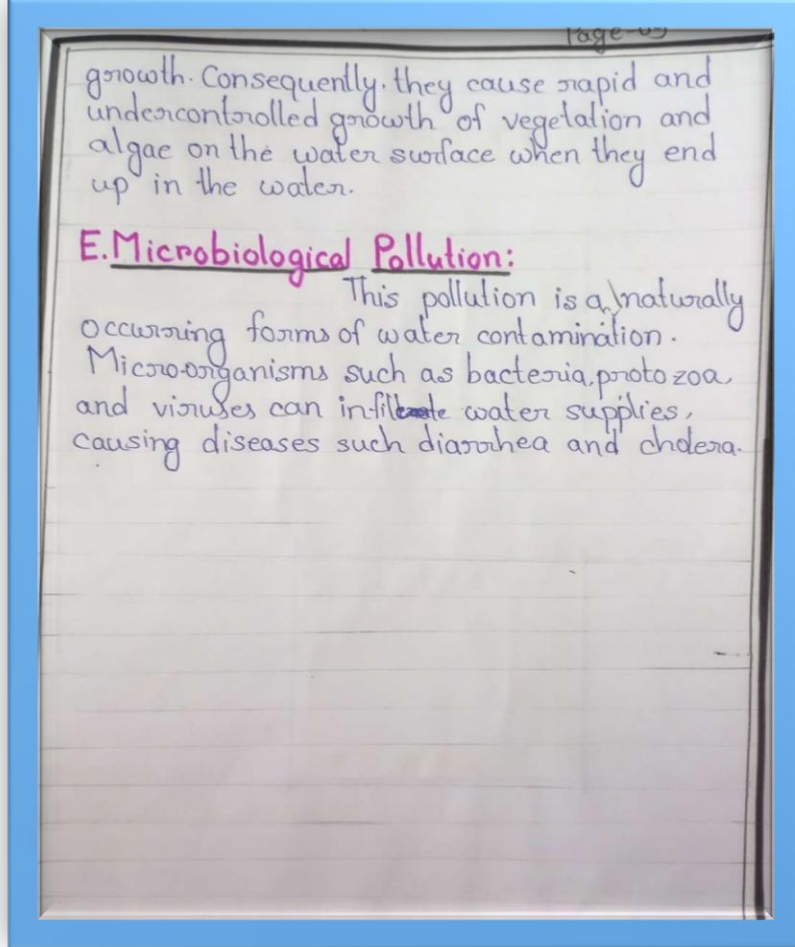 growth. Consequently, they cause rapid and
undercontrolled growth of vegetation and
algae on the water surface when they end
up in the water.
E. Microbiological Pollution:
This pollution is a naturally
occurring forms of water contamination.
Micro-organisms such as bacteria, protozoa,
and viruses can infiltrate water supplies,
causing diseases such diarrhea and cholera.